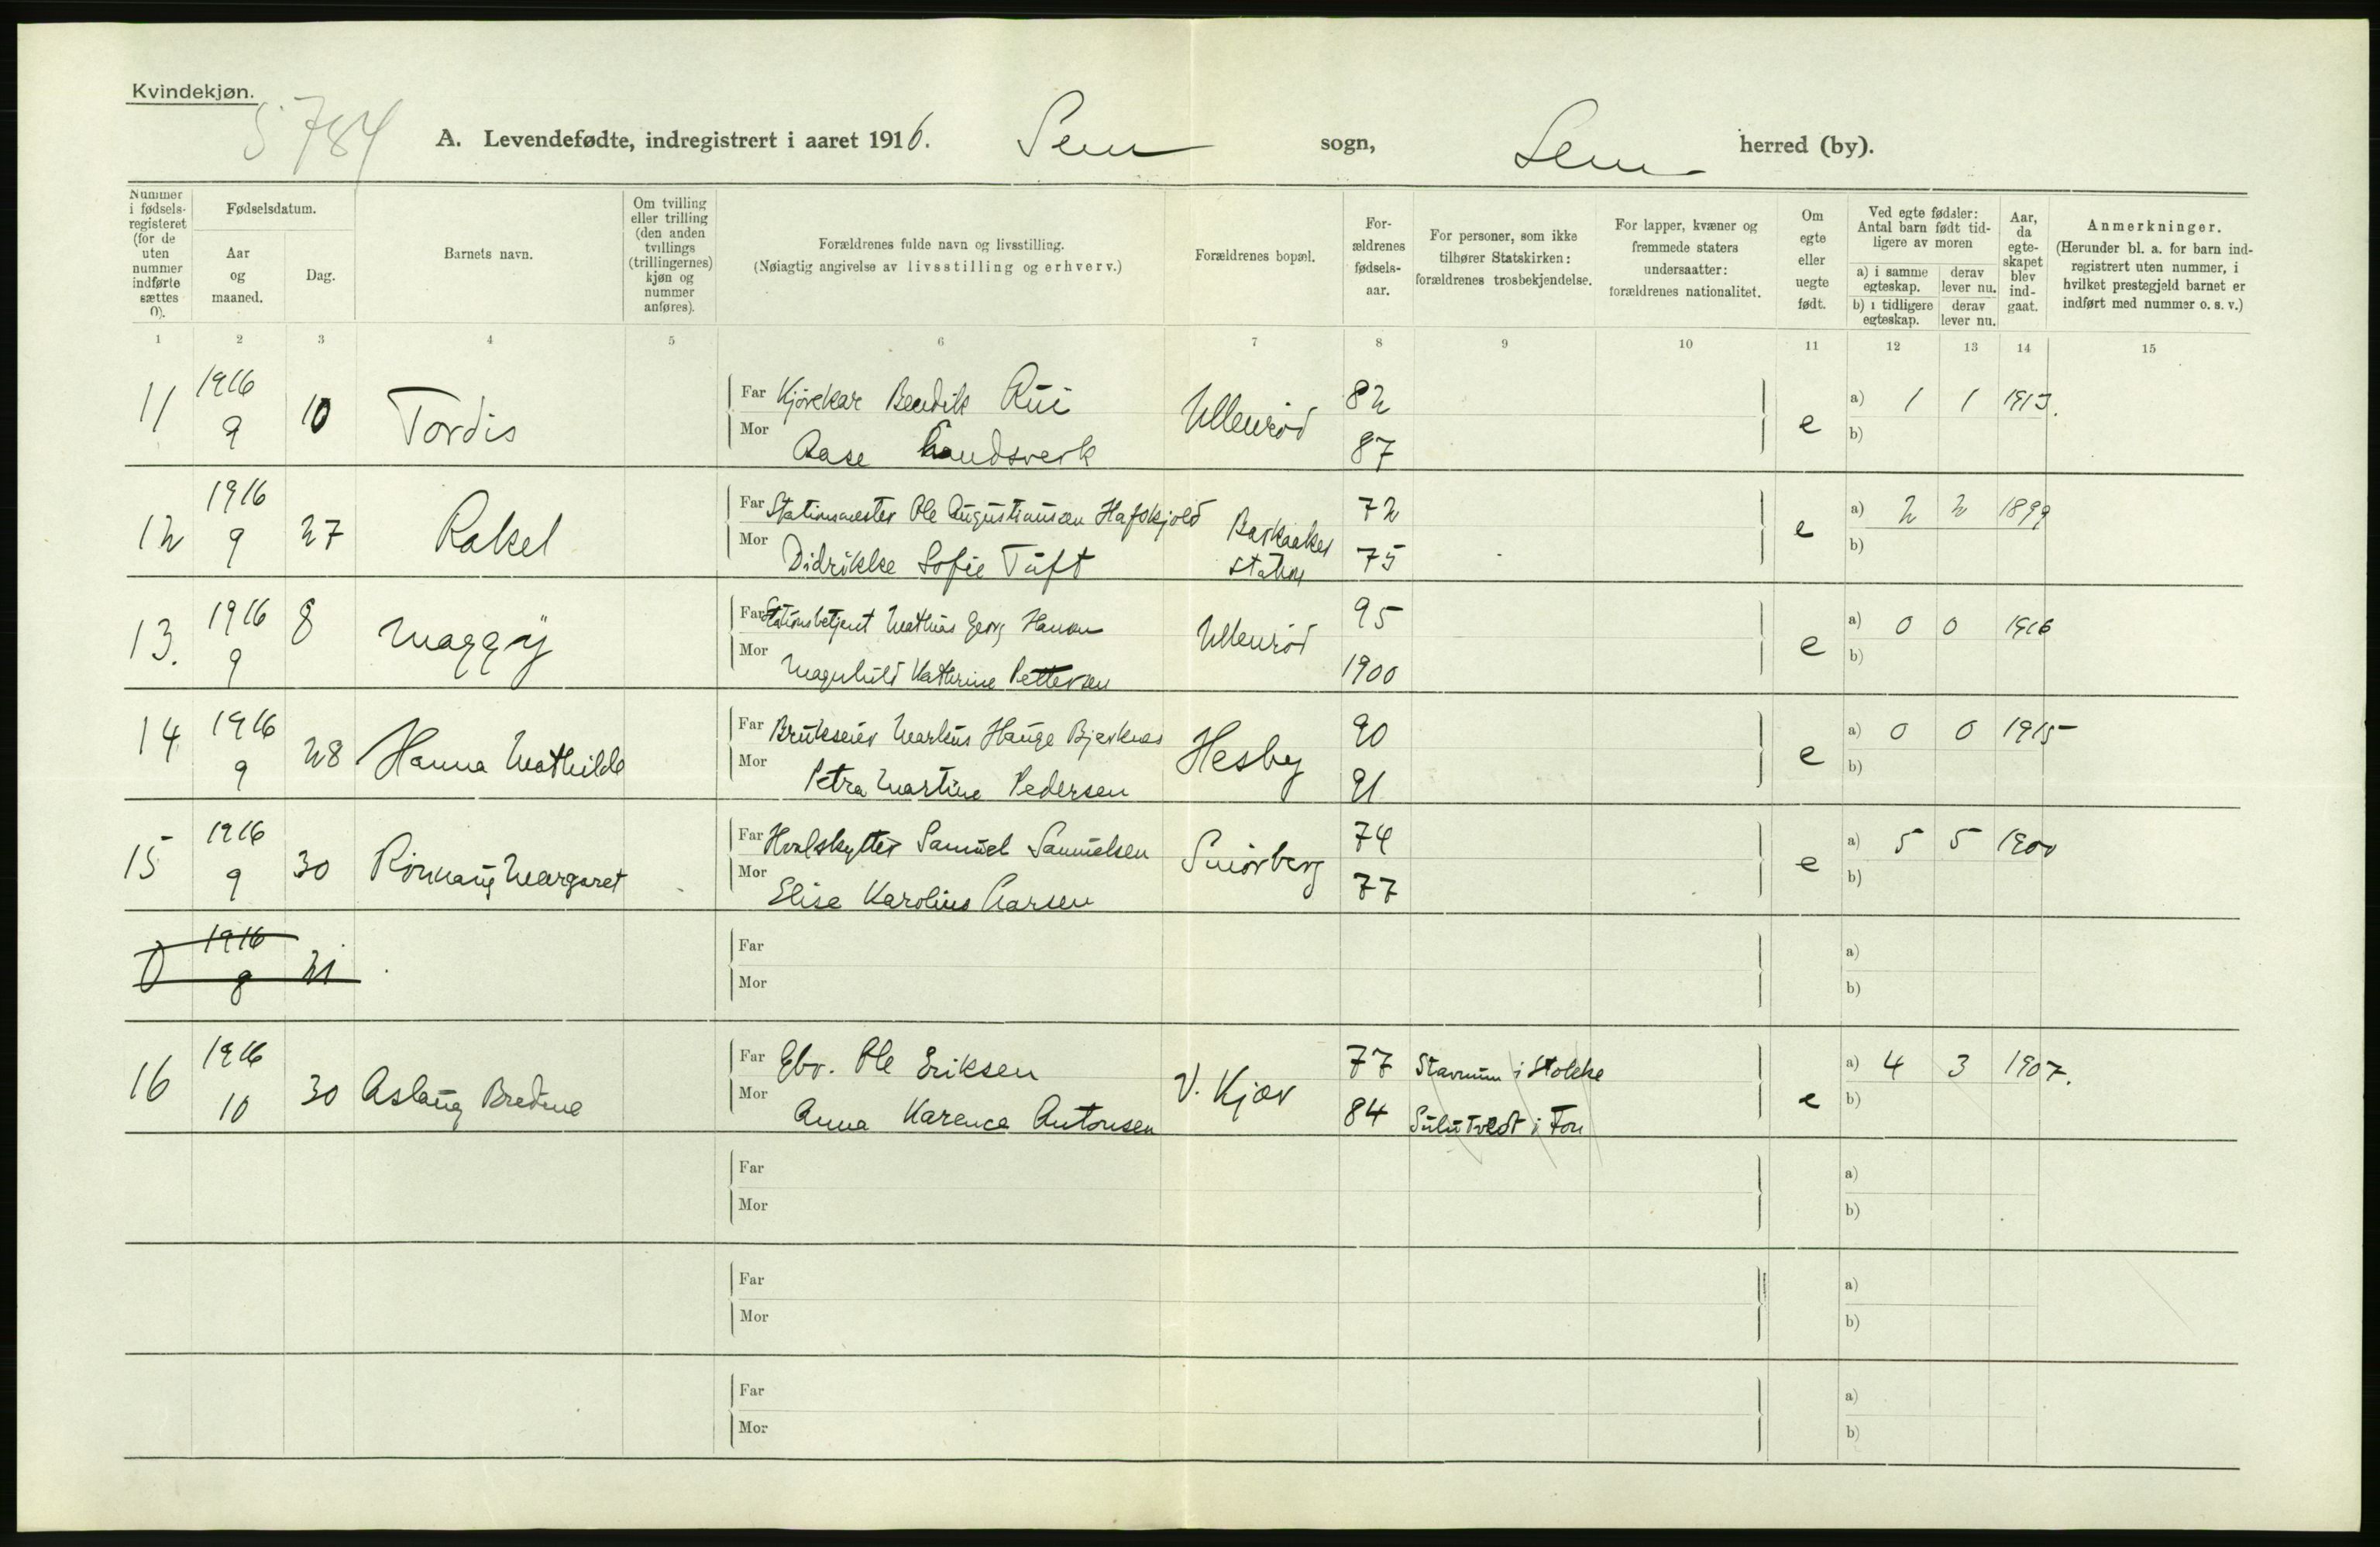 Kvindekjøn.
5784
A. Levendefødte, indregistrert i aaret 1916. Sem sogn, Sem herred (by).
Nummer i fødsels-registeret (for de uten nummer indførte sættes 0).
Fødselsdatum.
Aar og maaned.
Dag.
Barnets navn.
Om tvilling eller trilling (den anden tvillings (trillingernes) kjøn og nummer anføres).
Forældrenes fulde navn og livsstilling.
(Nøiagtig angivelse av livsstilling og erhverv.)
Forældrenes bopæl.
For-ældrenes fødsels-aar.
For personer, som ikke tilhører Statskirken: forældrenes trosbekjendelse.
For lapper, kvæner og fremmede staters undersaatter: forældrenes nationalitet.
Om egte eller uegte født.
Ved egte fødsler: Antal barn født tid-ligere av moren
a) i samme egteskap.
derav lever nu.
b) i tidligere egteskap.
derav lever nu.
Aar, da egte-skapet blev ind-gaat.
Anmerkninger.
(Herunder bl. a. for barn ind-registrert uten nummer, i hvilket prestegjeld barnet er indført med nummer o. s. v.)
1 2 3 4 5 6 7 8 9 10 11 12 13 14 15
11 1916 9 10 Tordis Far Kjørekar Bendik Rui Ullenrød 82 e a) 1 1 1913.
Mor Aase Landsverk 87 b)
12 1916 9 27 Rakel Far Stationsmester Ole Augustinusen Hafskjold Barkaaker Station 72 e a) 2 2 1899
Mor Didrikke Sofie Tuft 75 b)
13. 1916 9 8 Maggy Far Stationsbetjent Mathias Georg Hansen Ullenrød 95 e a) 0 0 1916
Mor Magnhild Kathrine Pettersen 1900 b)
14 1916 9 28 Hanna Mathilde Far Brukseier Markus Hauge Bjerknes Hesby 90 e a) 0 0 1915
Mor Petra Martine Pedersen 91 b)
15 1916 9 30 Rønnaug Margaret Far Hvalskytter Samuel Samuelsen Smørberg 74 e a) 5 5 1900
Mor Elise Karoline Larsen 77 b)
0 1916 9 21 Far a)
Mor b)
16 1916 10 30 Aslaug Bredine Far Gbr. Ole Eriksen V. Kjær 77 Stavnum i Stokke e a) 4 3 1907.
Mor Anna Karence Antonsen 84 i Fon b)
Far a)
Mor b)
Far a)
Mor b)
Far a)
Mor b)